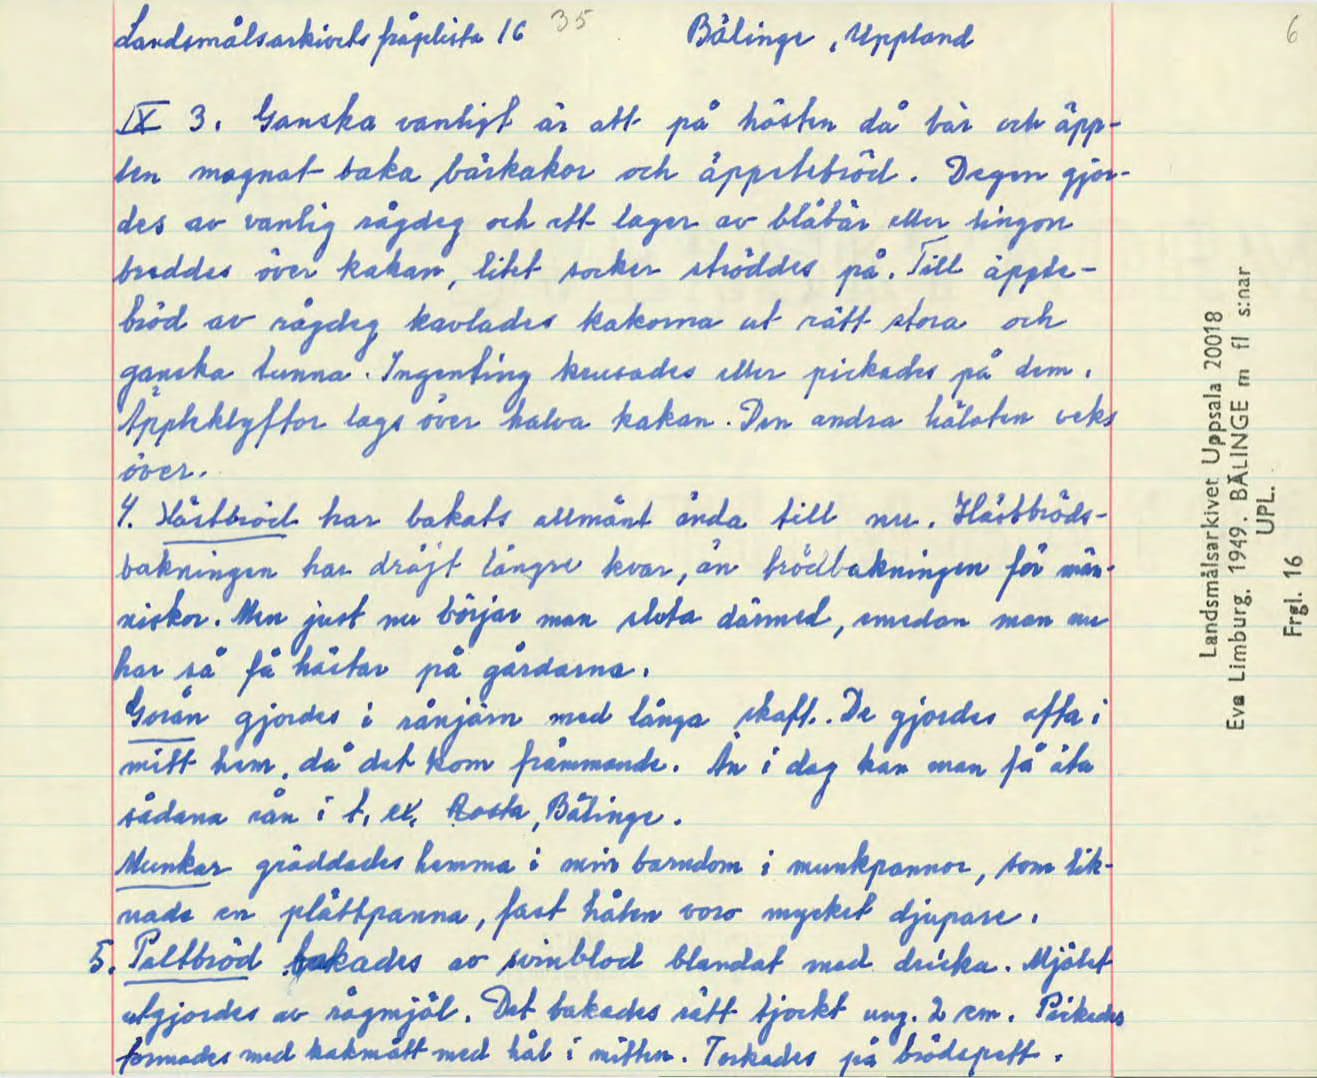 Landsmålsarkivets frågelista 16 35 Bälinge, Uppland 6
IX 3. Ganska vanligt är att på hösten då bär och äpp-
len mognat baka bärkakor och äpplebröd. Degen gjor-
des av vanlig rågdeg och ett lager av blåbär eller lingon
breddes över kakan, litet socker ströddes på. Till äpple-
bröd av rågdeg kavlades kakorna ut rätt stora och
ganska tunna. Ingenting krusades eller pickades på dem.
Äppleklyftor lags över halva kakan. Den andra hälvten veks
över.
4. Hästbröd har bakats allmänt ända till nu. Hästbröds-
bakningen har dröjt längre kvar, än brödbakningen för män-
niskor. Men just nu börjar man sluta därmed, emedan man nu
har så få hästar på gårdarna.
Gorån gjordes i rånjärn med långa skaft. De gjordes ofta i
mitt hem, då det kom främmande. Än i dag kan man få äta
sådana rån i t. ex. Rosta, Bälinge.
Munkar gräddades hemma i min barndom i munkpannor, som lik-
nade en plättpanna, fast hålen voro mycket djupare.
5. Paltbröd bakades av svinblod blandat med dricka. Mjölet
utgjordes av rågmjöl. Det bakades rätt tjockt ung. 2 cm. Pickades
formades med kakmått med hål i mitten. Torkades på brödspett.
Landsmålsarkivet Uppsala 20018
Eva Limburg. 1949. BÄLINGE m fl s:nar
UPL.
Frgl. 16